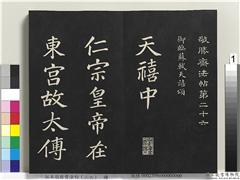 敬勝齋法帖第二十六
御臨蘇軾天禧頌
天禧中
仁宗皇帝在
東宮故太傅
1